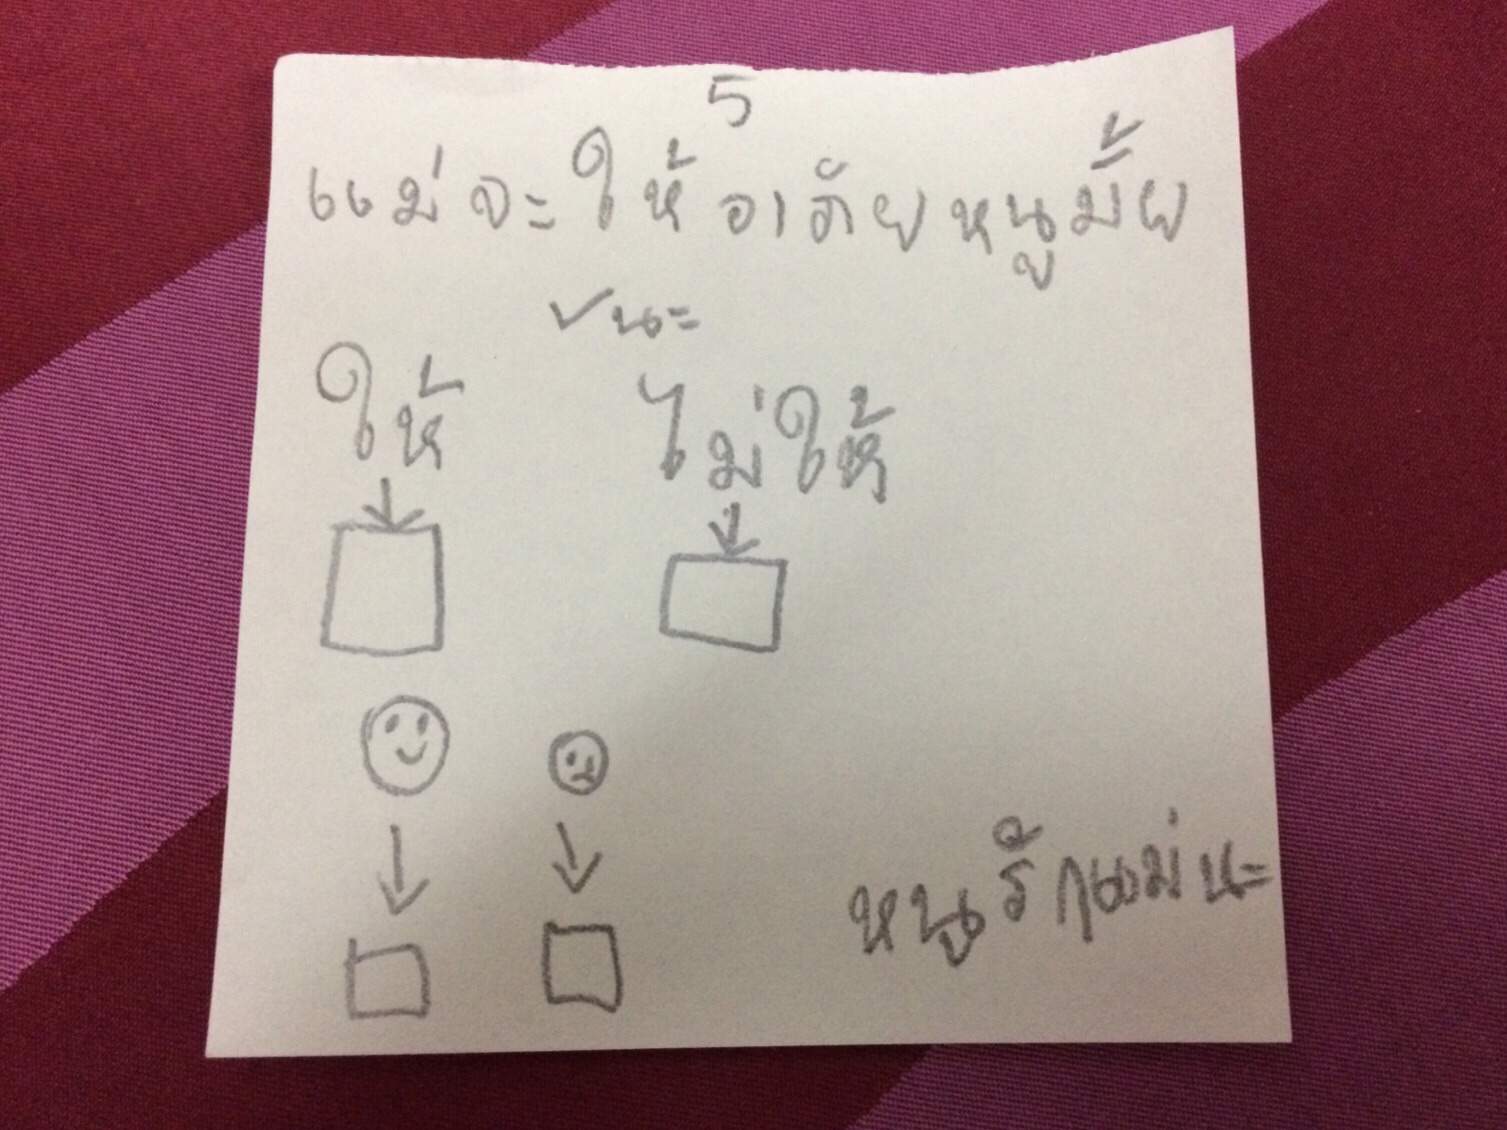 5
แม่จะให้อาภัยหนูมั้ย
✓นะ
ให้ ไม่ให้
หนูรักแม่นะ